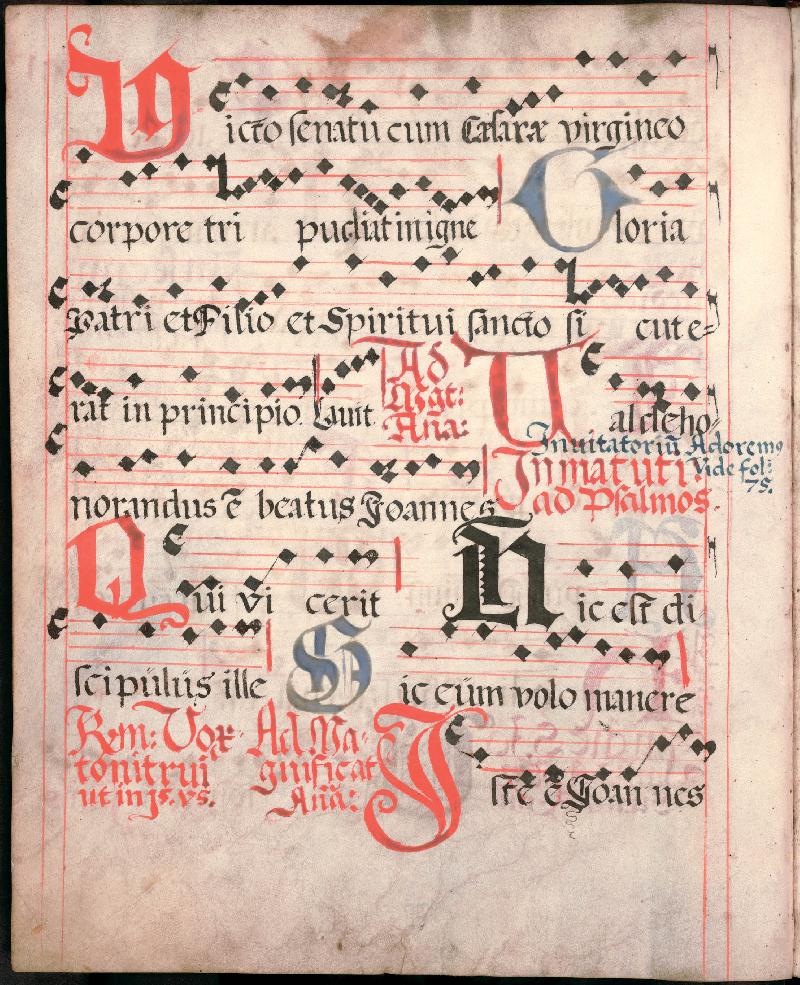 Victo senatu cum Cæsaræ virgineo
corpore tri pudiat in igne Gloria
Patri et Filio et Spiritui sancto si cut e-
rat in principio Lauit Ad Mgt: Ana: Ualde ho-
norandus ē beatus Joannes In matuti: ad Psalmos.
Inuitatoriū Adoremꝰ
Vide fol:
75.
Qui vi cerit Hic est di
scipulus ille Sic eum volo manere
Rem: Vox tonitrui ut in js. vs. Ad Magnificat Anā: Iste ē Joannes